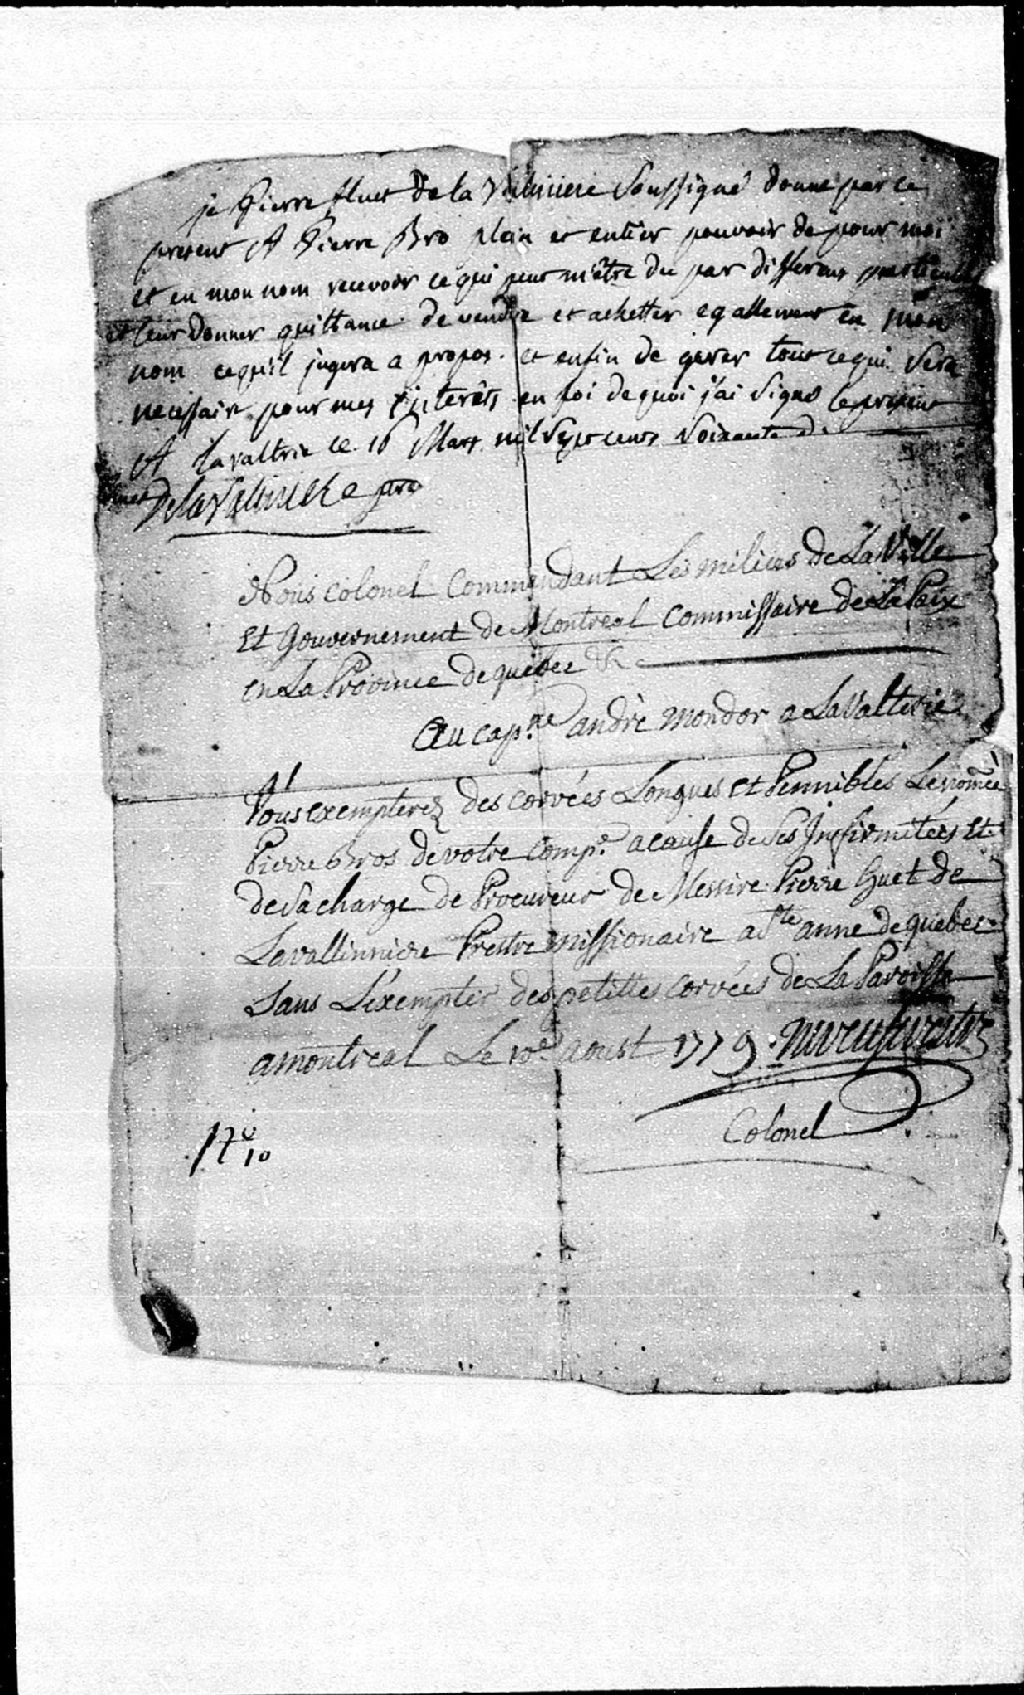 je Pierre Huet De la Valiniere Soussigné donne par ce
present A Pierre Bro plein et entier pouvoir de pour moi
et en mon nom recevoir ce qui peut m'être du par differens
et leur donner quittance de vendre et achetter egallement en mon
nom ce qu'il jugera a propos et enfin de gerer tout ce qui sera
necessaire pour mes interêts en foi de quoi j'ai signé le present
A Lavaltrie ce 16 Mars mil sept cents soixante
huet De la Valiniere ptre
Nous Colonel Commendant Les milices de La Ville
Et Gouvernement de Montreal Commissaire de La Paix
en La Province de quebec &c
Au cap.ne andrè mondor a LaValterie
Vous exempterez des corvées Longues et Pennibles Le nommé
Pierre Bros de votre Comp.e a cause de Ses Infirmitées Et
de Sa charge de Procureur de Messire Pierre Huet de
Lavallinniere Prestre missionaire a Ste anne de quebec
Sans L'exempter des petittes corvées de La Paroisse
a montreal Le 10e aoust 1779.
Colonel